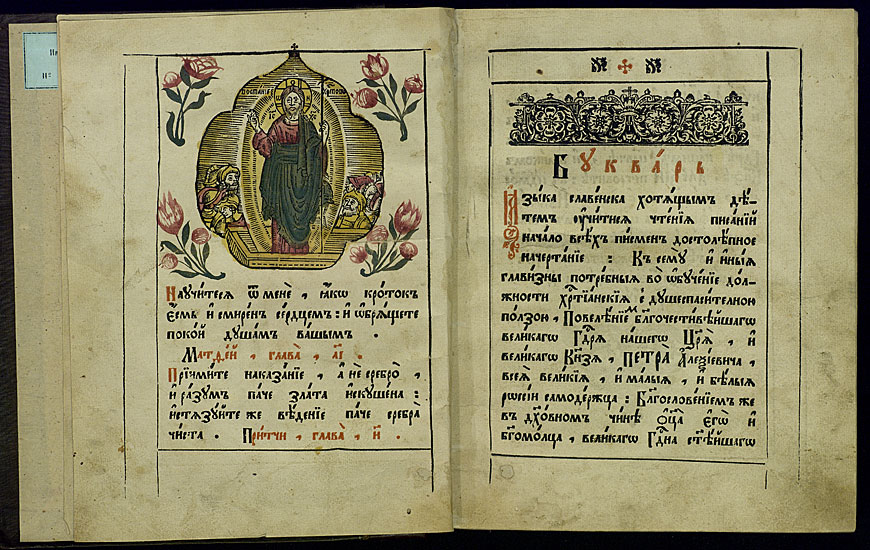 Научитеся ѿ менє , ꙗкѡ кротокъ
єсмь и смирен сердцемъ : и ѡбрящете
покой душамъ вашымъ .
Матѳей , глава , аі .
Пріимите наказаніе , а не сребро ,
и разум паче злата искушена :
истязуйте же вѣденіе паче сребра
чиста . Притчи , глава , и .
Букварь
Ꙗзыка славенска хотящымъ дѣ-
темъ ѹчитися чтенія писаній
начало всѣхъ писмен достолѣпное
начертаніе : Къ сему и иныя
главизны потребныя во ѡбученіе дол-
жности хрⷭ҇тіанскія с душеспасителною
ползою , Повелѣніемъ благочестивѣйшаго
великагѡ Гдⷭ҇ря нашегѡ Цр҃я , и
великагѡ Кн҃зя , ПЕТРА Алеѯіевича ,
всея великія , и малыя , и бѣлыя
рѡссіи самодержца : Благословеніем же
въ дх҃овном чинѣ ѻц҃а Єгѡ и
бг҃омолца , великагѡ Гдⷭ҇на ст҃ѣйшагѡ